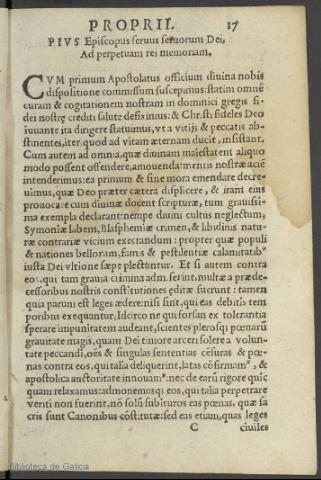 PROPRII. 17
PIVS Episcopus seruus seruorum Dei,
Ad perpetuam rei memoriam.
CVM primum Apostolatus officium diuina nobis
dispositione commissum suscepimus: statim omnē
curam & cogitationem nostram in dominici gregis fi-
dei nostrę crediti salute defiximus: & Christi fideles Deo
iuuante ita dirigere statuimus, vt a vitijs & peccatis ab-
stinentes, iter, quod ad vitam æternam ducit, insistant.
Cum autem ad omnia, quæ diuinam maiestatem aliquo
modo possent offendere, amouenda mentis nostræ aciē
intenderimus: ea primum & sine mora emendare decre-
uimus, quæ Deo præter cætera displicere, & irani eius
prouocare cum diuinæ docent scripturæ, tum grauissi-
ma exempla declarant: nempe diuini cultus neglectum,
Symoniæ labem, Blasphemiæ crimen, & libidinis natu-
ræ contrariæ vicium execrandum: propter quæ populi
& nationes bellorum, famis & pestilentiæ calamitatibᵒ
iusta Dei vltione sæpe plectuntur. Et si autem contra
eos, qui tam grauia crimina admiserint, multæ a præde-
cessoribus nostris constitutiones editæ fuerunt: tamen
quia parum est leges ædere: nisi sint, qui eas debitis tem
poribus exequantur, Idcirco ne qui forsan ex tolerantia
sperare impunitatem audeant, scientes plerosq; pœnarū
grauitate magis, quam Dei timore arceri solere a volun-
tate peccandi, oēs & singulas sententias cēsuras & pœ-
nas contra eos, qui talia deliquerint, latas cōfirmamᵒ, &
apostolica auctoritate innouamᵒ: nec de earū rigore quic
quam relaxamus: admonemusq; eos, qui talia perpetrare
veriti non fuerint, nō solū subituros eas pœnas, quæ sa
cris sunt Canonibus cōstitutæ: sed eas etiam, quas leges
C ciuiles
Biblioteca de Galicia